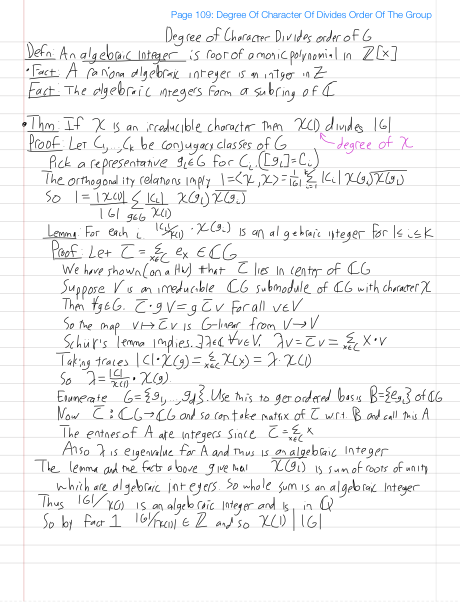 Page 109: Degree Of Character Of Divides Order Of The Group
Degree of Character Divides order of G
Defn: An algebraic integer is root of a monic polynomial in Z[x]
• Fact: A rational algebraic integer is an integer in Z
Fact: The algebraic integers form a subring of C
• Thm: If χ is an irreducible character then χ(1) divides |G|
degree of χ
Proof: Let C₁,...,Cₖ be conjugacy classes of G
Pick a representative gᵢ∈G for Cᵢ. ([gᵢ]=Cᵢ)
The orthogonality relations imply 1=<χ,χ>=1/|G| Σ |Cᵢ| χ(gᵢ) \overline{χ(gᵢ)}
So 1= χ(1)/|G| Σ |Cᵢ|/χ(1) χ(gᵢ) \overline{χ(gᵢ)}
Lemma: For each i |Cᵢ|/χ(1) · χ(gᵢ) is an algebraic integer for 1≤i≤k
Proof: Let \overline{C} = Σ_{x∈C} eₓ ∈ CG
We have shown (on a HW) that \overline{C} lies in center of CG
Suppose V is an irreducible CG submodule of CG with character χ
Then ∀g∈G. \overline{C}·gV=g\overline{C}v for all v∈V
So the map v↦\overline{C}v is G-linear from V→V
Schur's lemma implies. ∃λ∈C ∀v∈V. λv=\overline{C}v = Σ_{x∈C} x·v
Taking traces |C|·χ(g)= Σ_{x∈C} χ(x) = λ·χ(1)
So λ= |C|/χ(1) · χ(g)
Enumerate G={g₁,...,g_d}. Use this to get ordered basis B={e_{gᵢ}} of CG
Now \overline{C}: CG→CG and so can take matrix of \overline{C} w.r.t. B and call this A
The entries of A are integers since \overline{C}= Σ_{x∈C} x
Also λ is eigenvalue for A and thus is an algebraic integer
The lemma and the facts above give that \overline{χ(gᵢ)} is sum of roots of unity
which are algebraic integers. So whole sum is an algebraic integer
Thus |G|/χ(1) is an algebraic integer and is in Q
So by Fact 1 |G|/χ(1) ∈ Z and so χ(1) | |G|